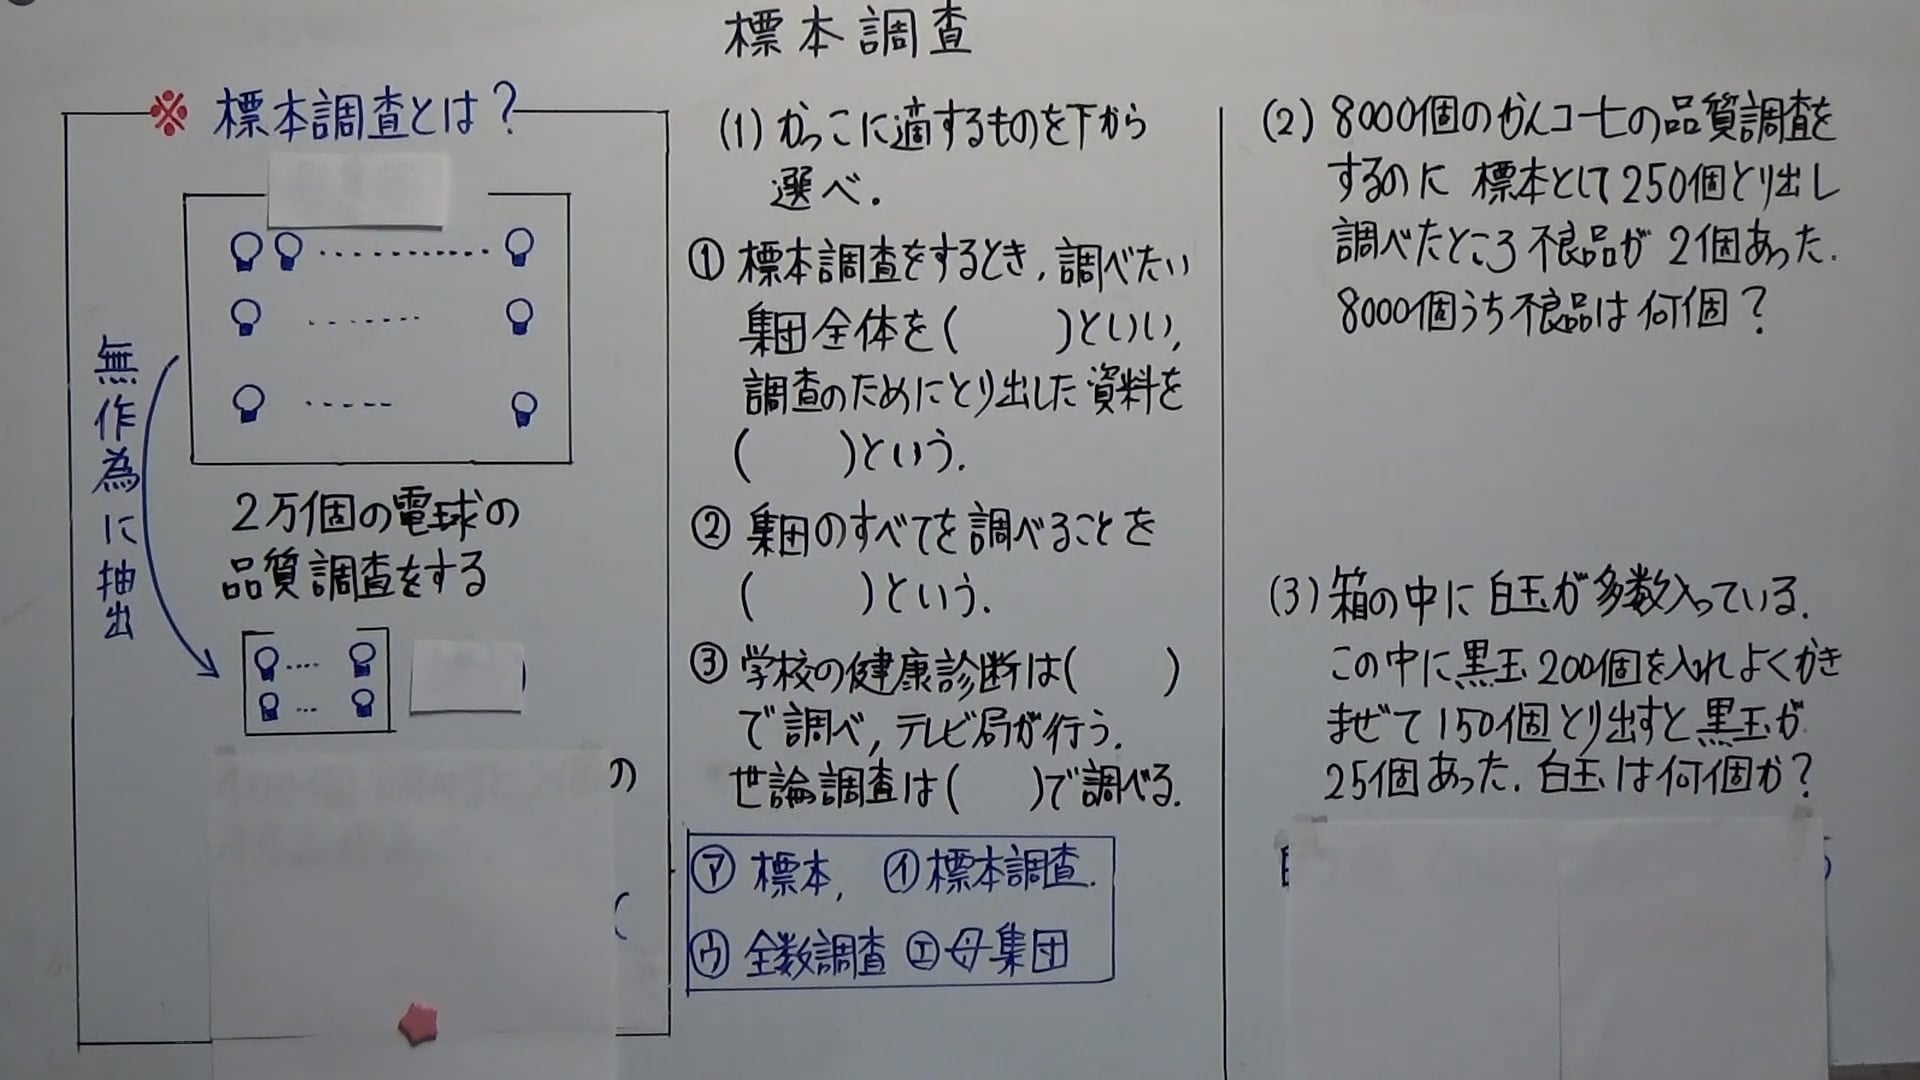 標本調査
※ 標本調査とは?
無作為に抽出
2万個の電球の
品質調査をする
の
(1) かっこに適するものを下から
選べ.
① 標本調査をするとき, 調べたい
集団全体を(　　)といい,
調査のためにとり出した資料を
(　　)という.
② 集団のすべてを調べることを
(　　)という.
③ 学校の健康診断は(　　)
で調べ, テレビ局が行う.
世論調査は(　　)で調べる.
㋐ 標本, ㋑ 標本調査.
㋒ 全数調査 ㋓ 母集団
(2) 8000個のかんコーヒの品質調査を
するのに 標本として250個とり出し
調べたところ不良品が 2個あった.
8000個うち不良品は何個?
(3) 箱の中に白玉が多数入っている.
この中に黒玉200個を入れよくかき
まぜて150個とり出すと黒玉が
25個あった. 白玉は何個か?